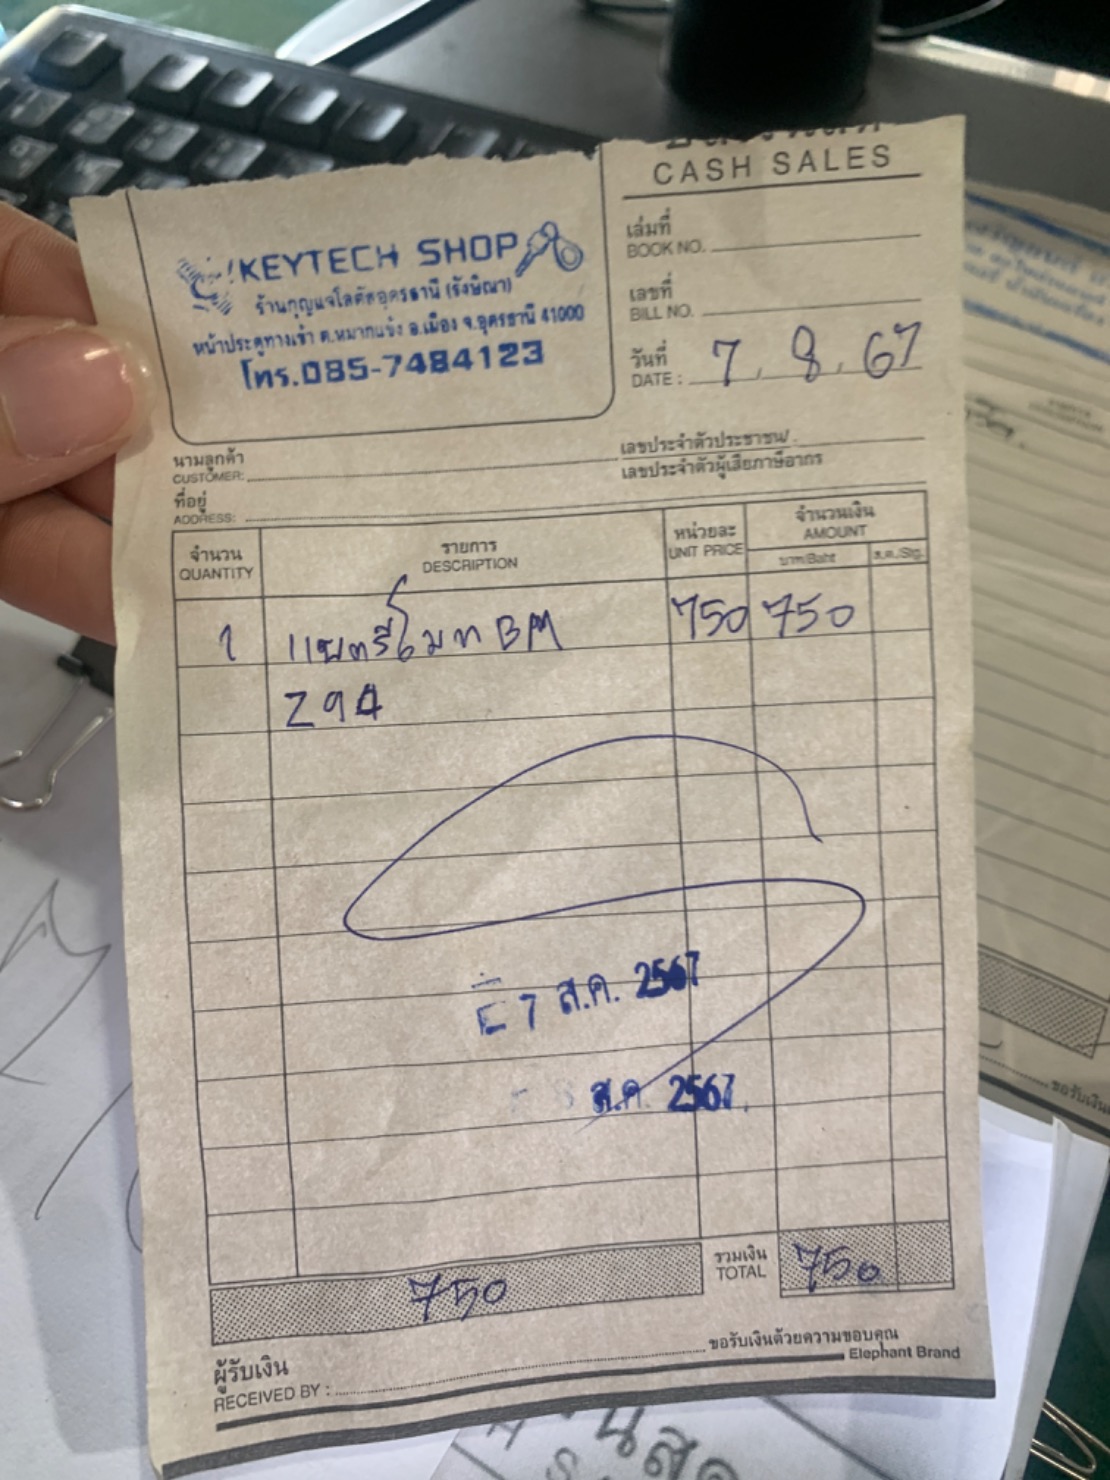 CASH SALES
KEYTECH SHOP
ร้านกุญแจโลตัสอุดรธานี (รังษิณา)
หน้าประตูทางเข้า ต.หมากแข้ง อ.เมือง จ.อุดรธานี 41000
โทร.085-7484123
เล่มที่
BOOK NO.
เลขที่
BILL NO.
วันที่
DATE : 7. 8. 67
นามลูกค้า
CUSTOMER:
เลขประจำตัวประชาชน/
เลขประจำตัวผู้เสียภาษีอากร
ที่อยู่
ADDRESS:
จำนวน รายการ หน่วยละ จำนวนเงิน
QUANTITY DESCRIPTION UNIT PRICE AMOUNT
บาท/Baht ส.ต./Stg.
1 แบตรีโมท BM 750 750
Z94
7 ส.ค. 2567
ส.ค. 2567
750 รวมเงิน 750
TOTAL
ผู้รับเงิน ขอรับเงินด้วยความขอบคุณ
RECEIVED BY : Elephant Brand
ขอรับเงิน